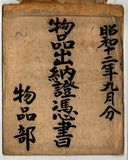 昭和十二年九月分
物品出納證憑書
物品部